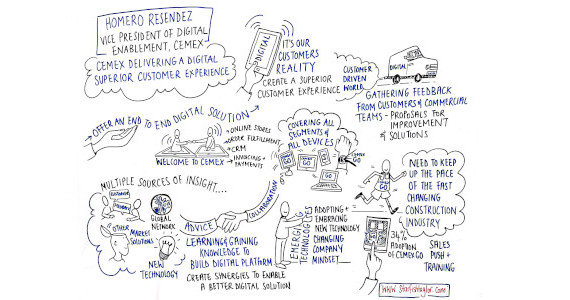 HOMERO RESENDEZ
VICE PRESIDENT OF DIGITAL
ENABLEMENT, CEMEX
CEMEX DELIVERING A DIGITAL
SUPERIOR CUSTOMER EXPERIENCE
DIGITAL
IT'S OUR
CUSTOMERS
REALITY
CREATE A SUPERIOR
CUSTOMER EXPERIENCE
CUSTOMER
DRIVEN
WORLD
DIGITAL
GATHERING FEEDBACK
FROM CUSTOMERS & COMMERCIAL
TEAMS - PROPOSALS FOR
IMPROVEMENT
& SOLUTIONS
OFFER AN END TO END DIGITAL SOLUTION
WELCOME TO CEMEX
ONLINE STORES
ORDER FULFILLMENT
CRM
INVOICING +
PAYMENTS
COVERING ALL
SEGMENTS &
ALL DEVICES
GO
GO
GO
CEMEX
GO
GO
NEED TO KEEP
UP THE PACE
OF THE FAST
CHANGING
CONSTRUCTION
INDUSTRY
MULTIPLE SOURCES OF INSIGHT....
CUSTOMER
INSIGHTS
OTHER
MARKET
SOLUTIONS
GLOBAL
NETWORK
NEW
TECHNOLOGY
ADVICE
COLLABORATION
LEARNING & GAINING
KNOWLEDGE TO
BUILD DIGITAL PLATFORM
CREATE SYNERGIES TO ENABLE
A BETTER DIGITAL SOLUTION
EMERGING
TECHNOLOGIES
ADOPTING +
EMBRACING
NEW TECHNOLOGY
CHANGING
COMPANY
MINDSET
GO
34%
ADOPTION
OF CEMEX GO
SALES
PUSH +
TRAINING